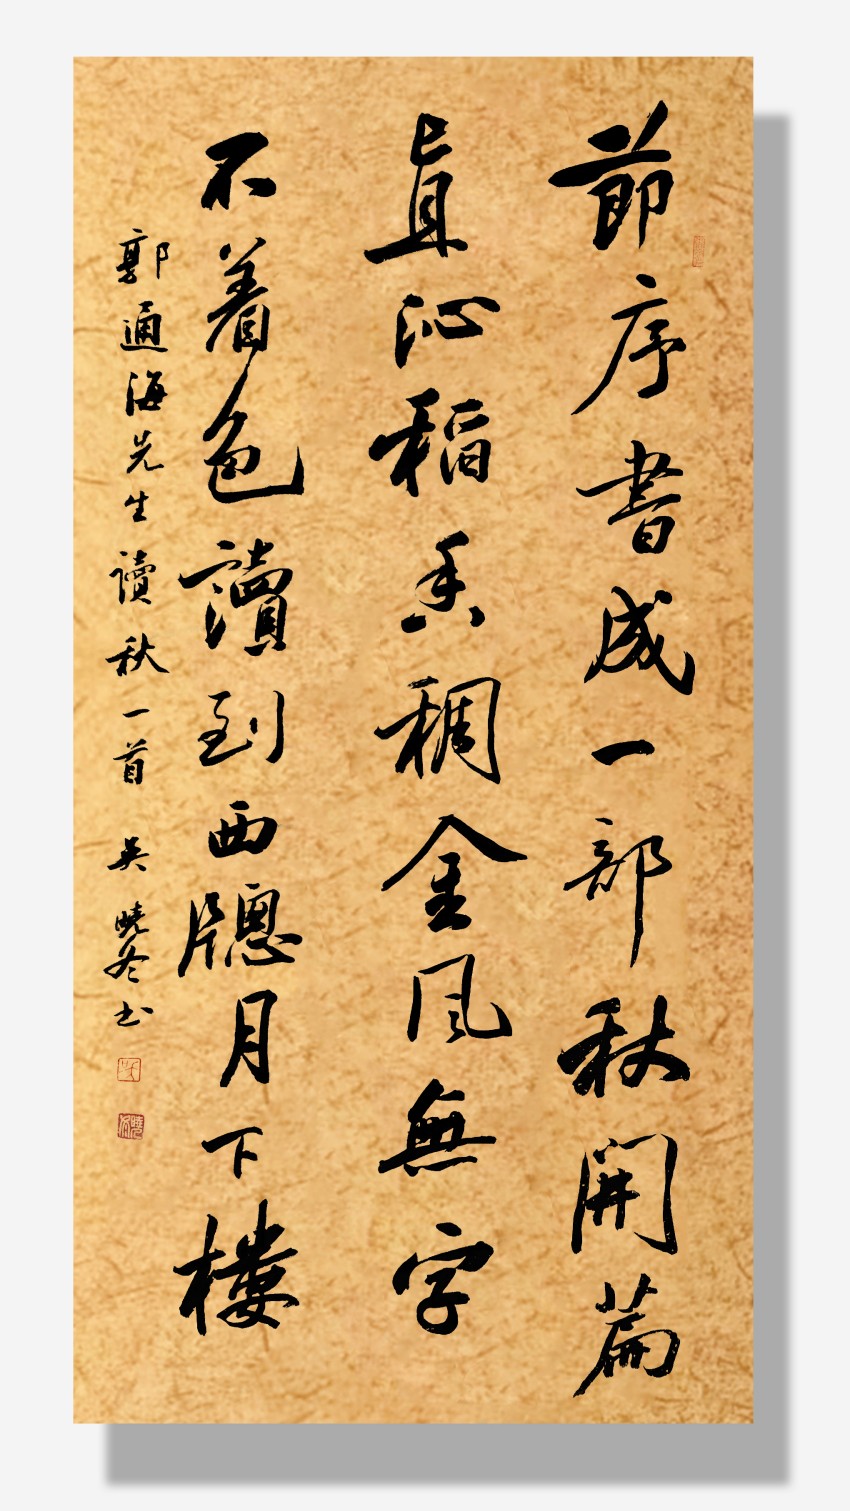 節序書成一部秋開篇
真沁稻香稠金風無字
不着色讀到西牕月下樓
郭通海先生讀秋一首 吳曉冬书